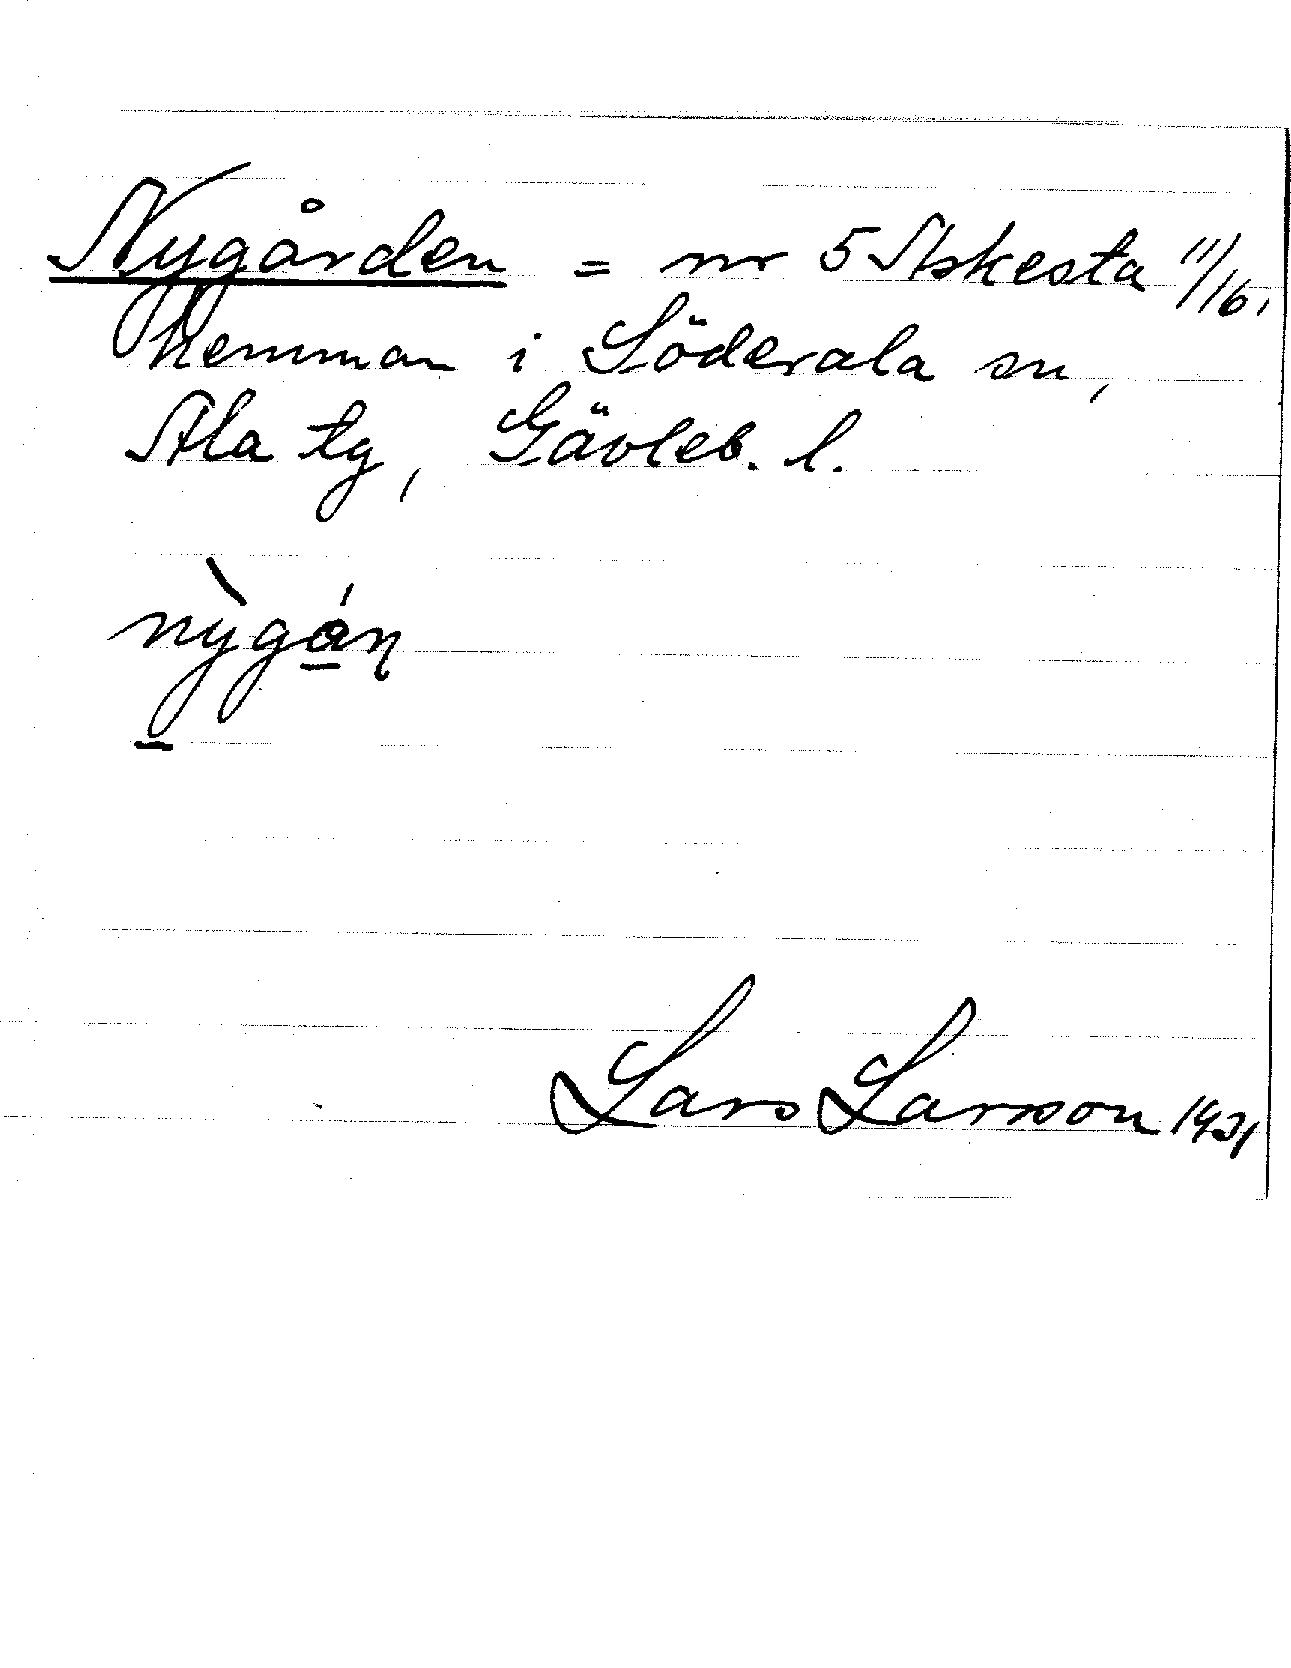 Nygården = nr 5 Askesta 11/16,
hemman i Söderala sn,
Ala tg, Gävleb. l.
nỳgán
Lars Larsson 1931